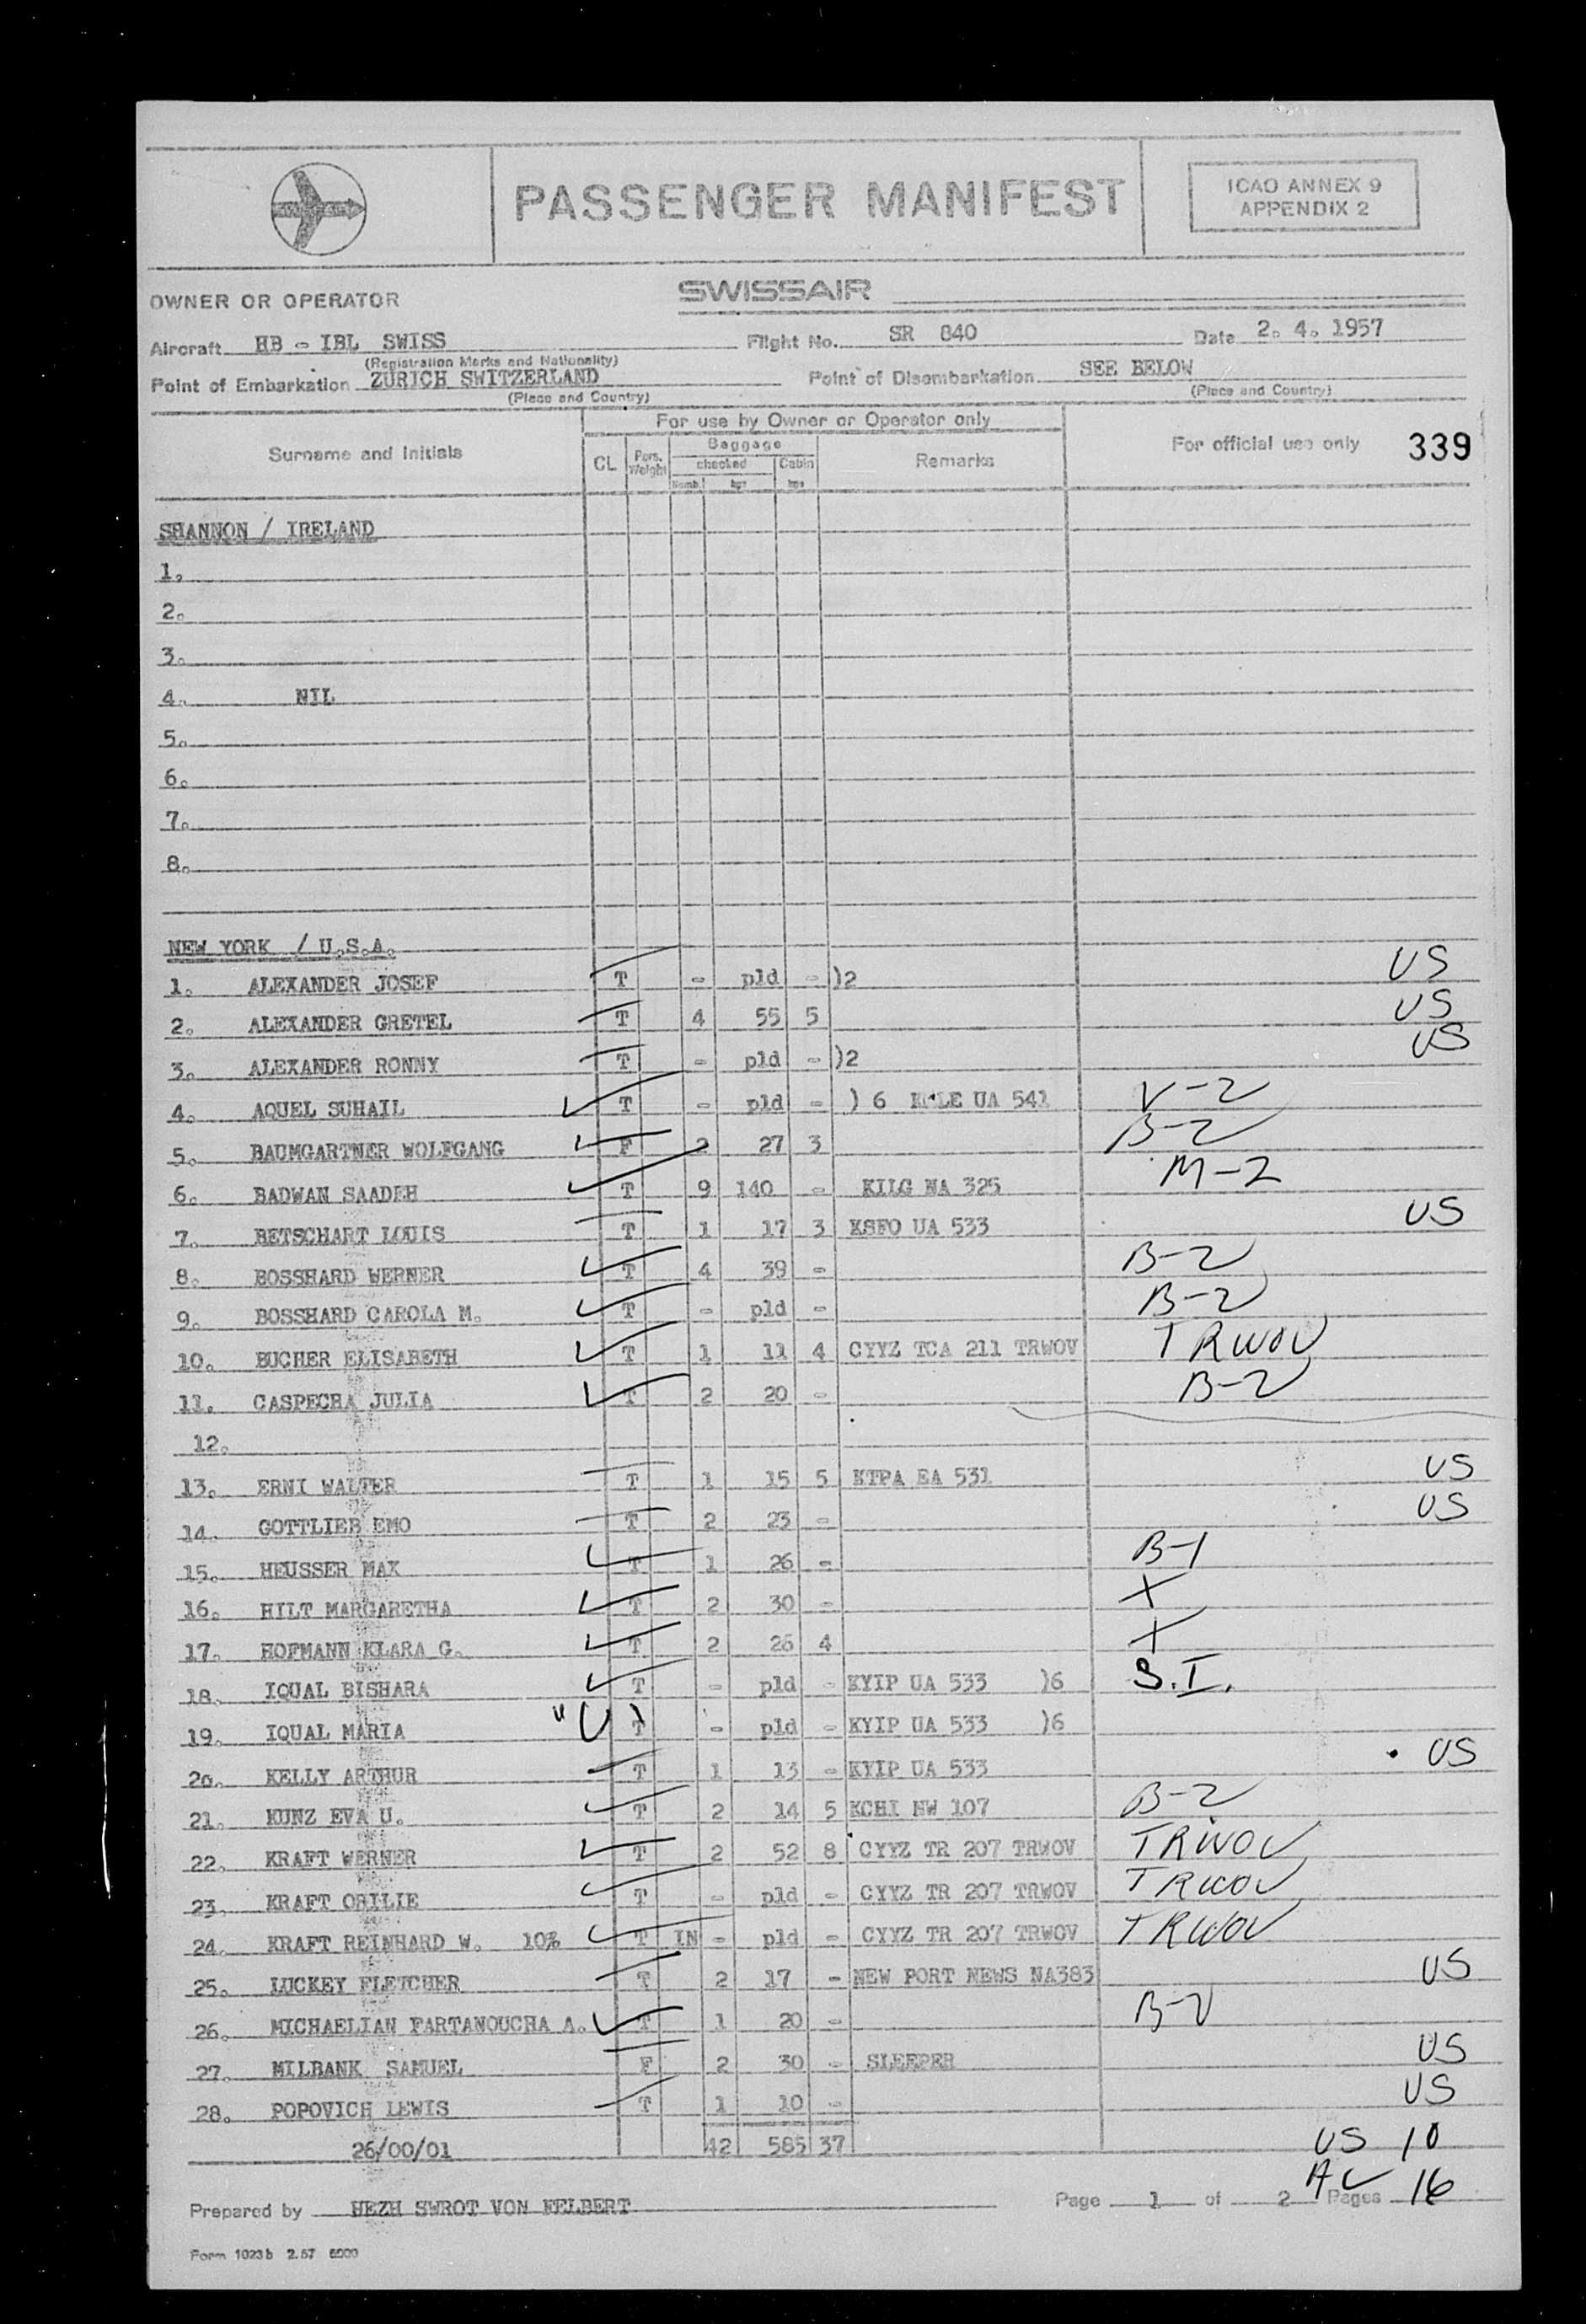 PASSENGER MANIFEST
ICAO ANNEX 9
APPENDIX 2
OWNER OR OPERATOR SWISSAIR
Aircraft HB - IBL SWISS Flight No. SR 840 Date 2. 4. 1957
(Registration Marks and Nationality)
Point of Embarkation ZURICH SWITZERLAND Point of Disembarkation SEE BELOW
(Place and Country) (Place and Country)
For use by Owner or Operator only
Surname and Initials CL Pers. Weight Baggage checked Numb. kgs Cabin kgs Remarks For official use only 339
SHANNON / IRELAND
1.
2.
3.
4. NIL
5.
6.
7.
8.
NEW YORK / U.S.A.
1. ALEXANDER JOSEF T - pld - )2 US
2. ALEXANDER GRETEL T 4 55 5 US
3. ALEXANDER RONNY T - pld - )2 US
4. AQUEL SUHAIL T - pld - ) 6 UA 541 V-2
5. BAUMGARTNER WOLFGANG F 2 27 3 B-2
6. BADWAN SAADEH T 9 140 - KILG NA 325 M-2
7. BETSCHART LOUIS T 1 17 3 KSFO UA 533 US
8. BOSSHARD WERNER T 4 39 - B-2
9. BOSSHARD CAROLA M. T - pld - B-2
10. BUCHER ELISABETH T 1 11 4 CYYZ TCA 211 TRWOV TRWOV
11. CASPECHA JULIA T 2 20 - B-2
12.
13. ERNI WALTER T 1 15 5 KTPA EA 531 US
14. GOTTLIEB EMO T 2 23 - US
15. HEUSSER MAX T 1 26 - B-1
16. HILT MARGARETHA T 2 30 - X
17. HOFMANN KLARA G. T 2 26 4 X
18. IQUAL BISHARA T - pld - KYIP UA 533 )6 S.I.
19. IQUAL MARIA "U" T - pld - KYIP UA 533 )6
20. KELLY ARTHUR T 1 13 - KYIP UA 533 US
21. KUNZ EVA U. T 2 14 5 KCHI NW 107 B-2
22. KRAFT WERNER T 2 52 8 CYYZ TR 207 TRWOV TRWOV
23. KRAFT ORILIE T - pld - CYYZ TR 207 TRWOV TRWOV
24. KRAFT REINHARD W. 10% T IN - pld - CYYZ TR 207 TRWOV TRWOV
25. LUCKEY FLETCHER T 2 17 - NEW PORT NEWS NA383 US
26. MICHAELIAN FARTANOUCHA A. T 1 20 - B-2
27. MILBANK SAMUEL F 2 30 - SLEEPER US
28. POPOVICH LEWIS T 1 10 - US
26/00/01 42 585 37 US 10
AL 16
Prepared by HEZH SWROT VON FELBERT Page 1 of 2 Pages
Form 1023b 2.57 6000